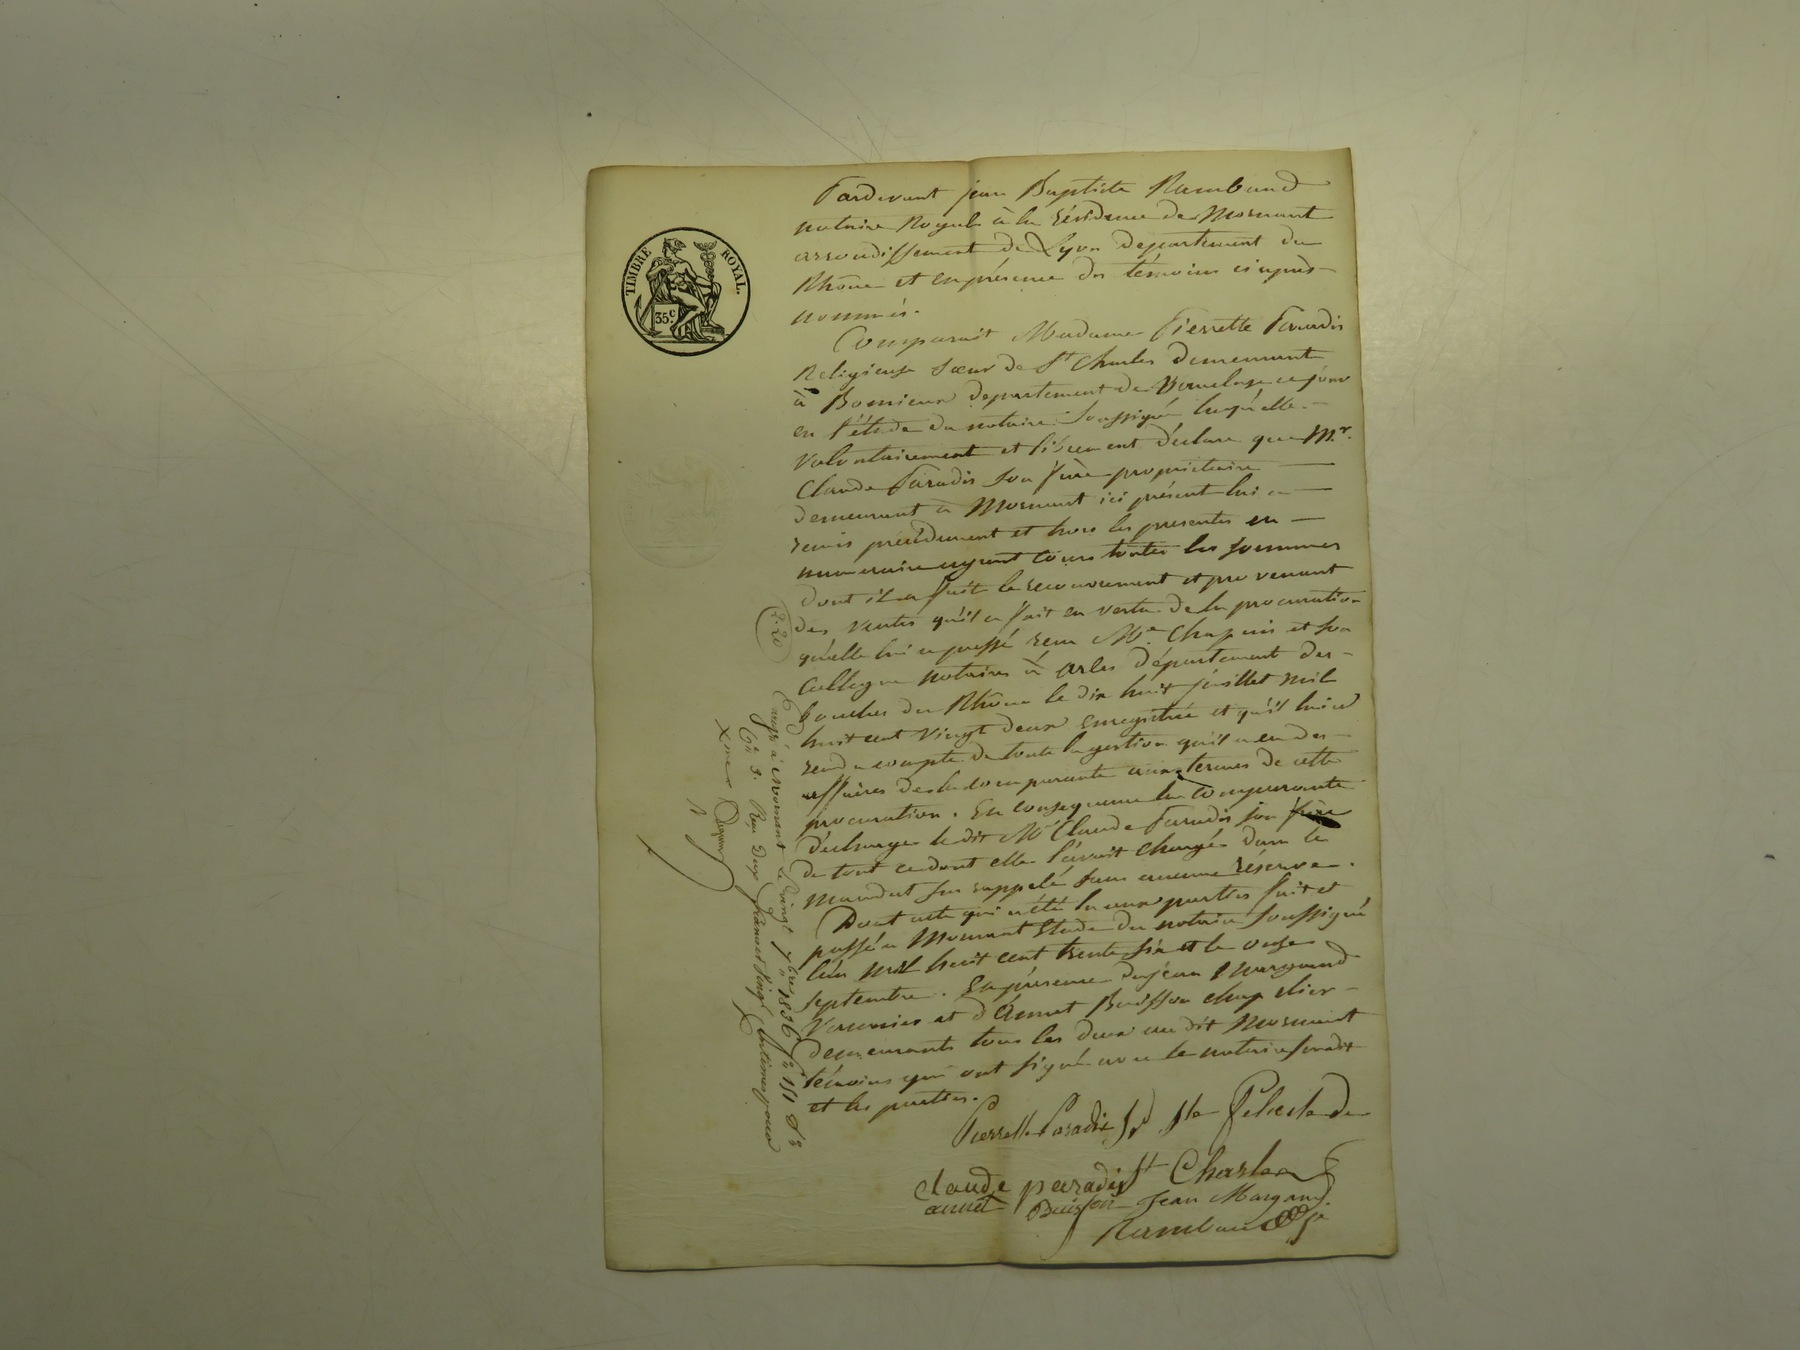 TIMBRE ROYAL.
35c.
Pardevant jean Baptiste Rambaud
notaire Royal à la résidence de Mornant
arrondissement de Lyon departement du
Rhône et en présence des témoins ci après
nommés.
Comparait Madame Pierrette Paradis
Religieuse sœur de St Charles demeurant
à departement de Vaucluse ce jour
en l'étude du notaire soussigné laquelle
volontairement et librement déclare que Mr.
Claude Paradis son frère propriétaire
demeurant à Mornant ici présent lui a
remis précédemment et hors les presentes en
numeraire ayant cours toutes les sommes
dont il a fait le recouvrement et provenant
des ventes qu'il a fait en vertu de la procuration
qu'elle lui a passé reçu Me. Chapuis et son
collegue notaires à arles département des
bouches du Rhône le dix huit juillet mil
huit cent vingt deux enregistrée et qu'il lui a
rendu compte de toute la gestion qu'il a eu des
affaires de la comparante aux termes de cette
procuration. En consequence la comparante
décharge le dit Mr Claude Paradis son frère
de tout ce dont elle l'avait chargé dans le
mandat sus rappelé sans aucune réserve.
Dont acte qui a été lu aux parties fait et
passé à Mornant Etude du notaire soussigné
l'an mil huit cent trente six et le onze
septembre. En présence de jean Margand
et d'Annet Buisson chapelier
demeurants tous les deux au dit Mornant
témoins qui ont signé avec le notaire susdit
et les parties.
Pierrette Paradis Sr Ste de
St Charles
claude paradis
annet Buisson Jean Margand
Rambaud
2.20
Enregé à Mornant le vingt 7bre 1836 fo 151
Reçu Deux francs vingt centimes